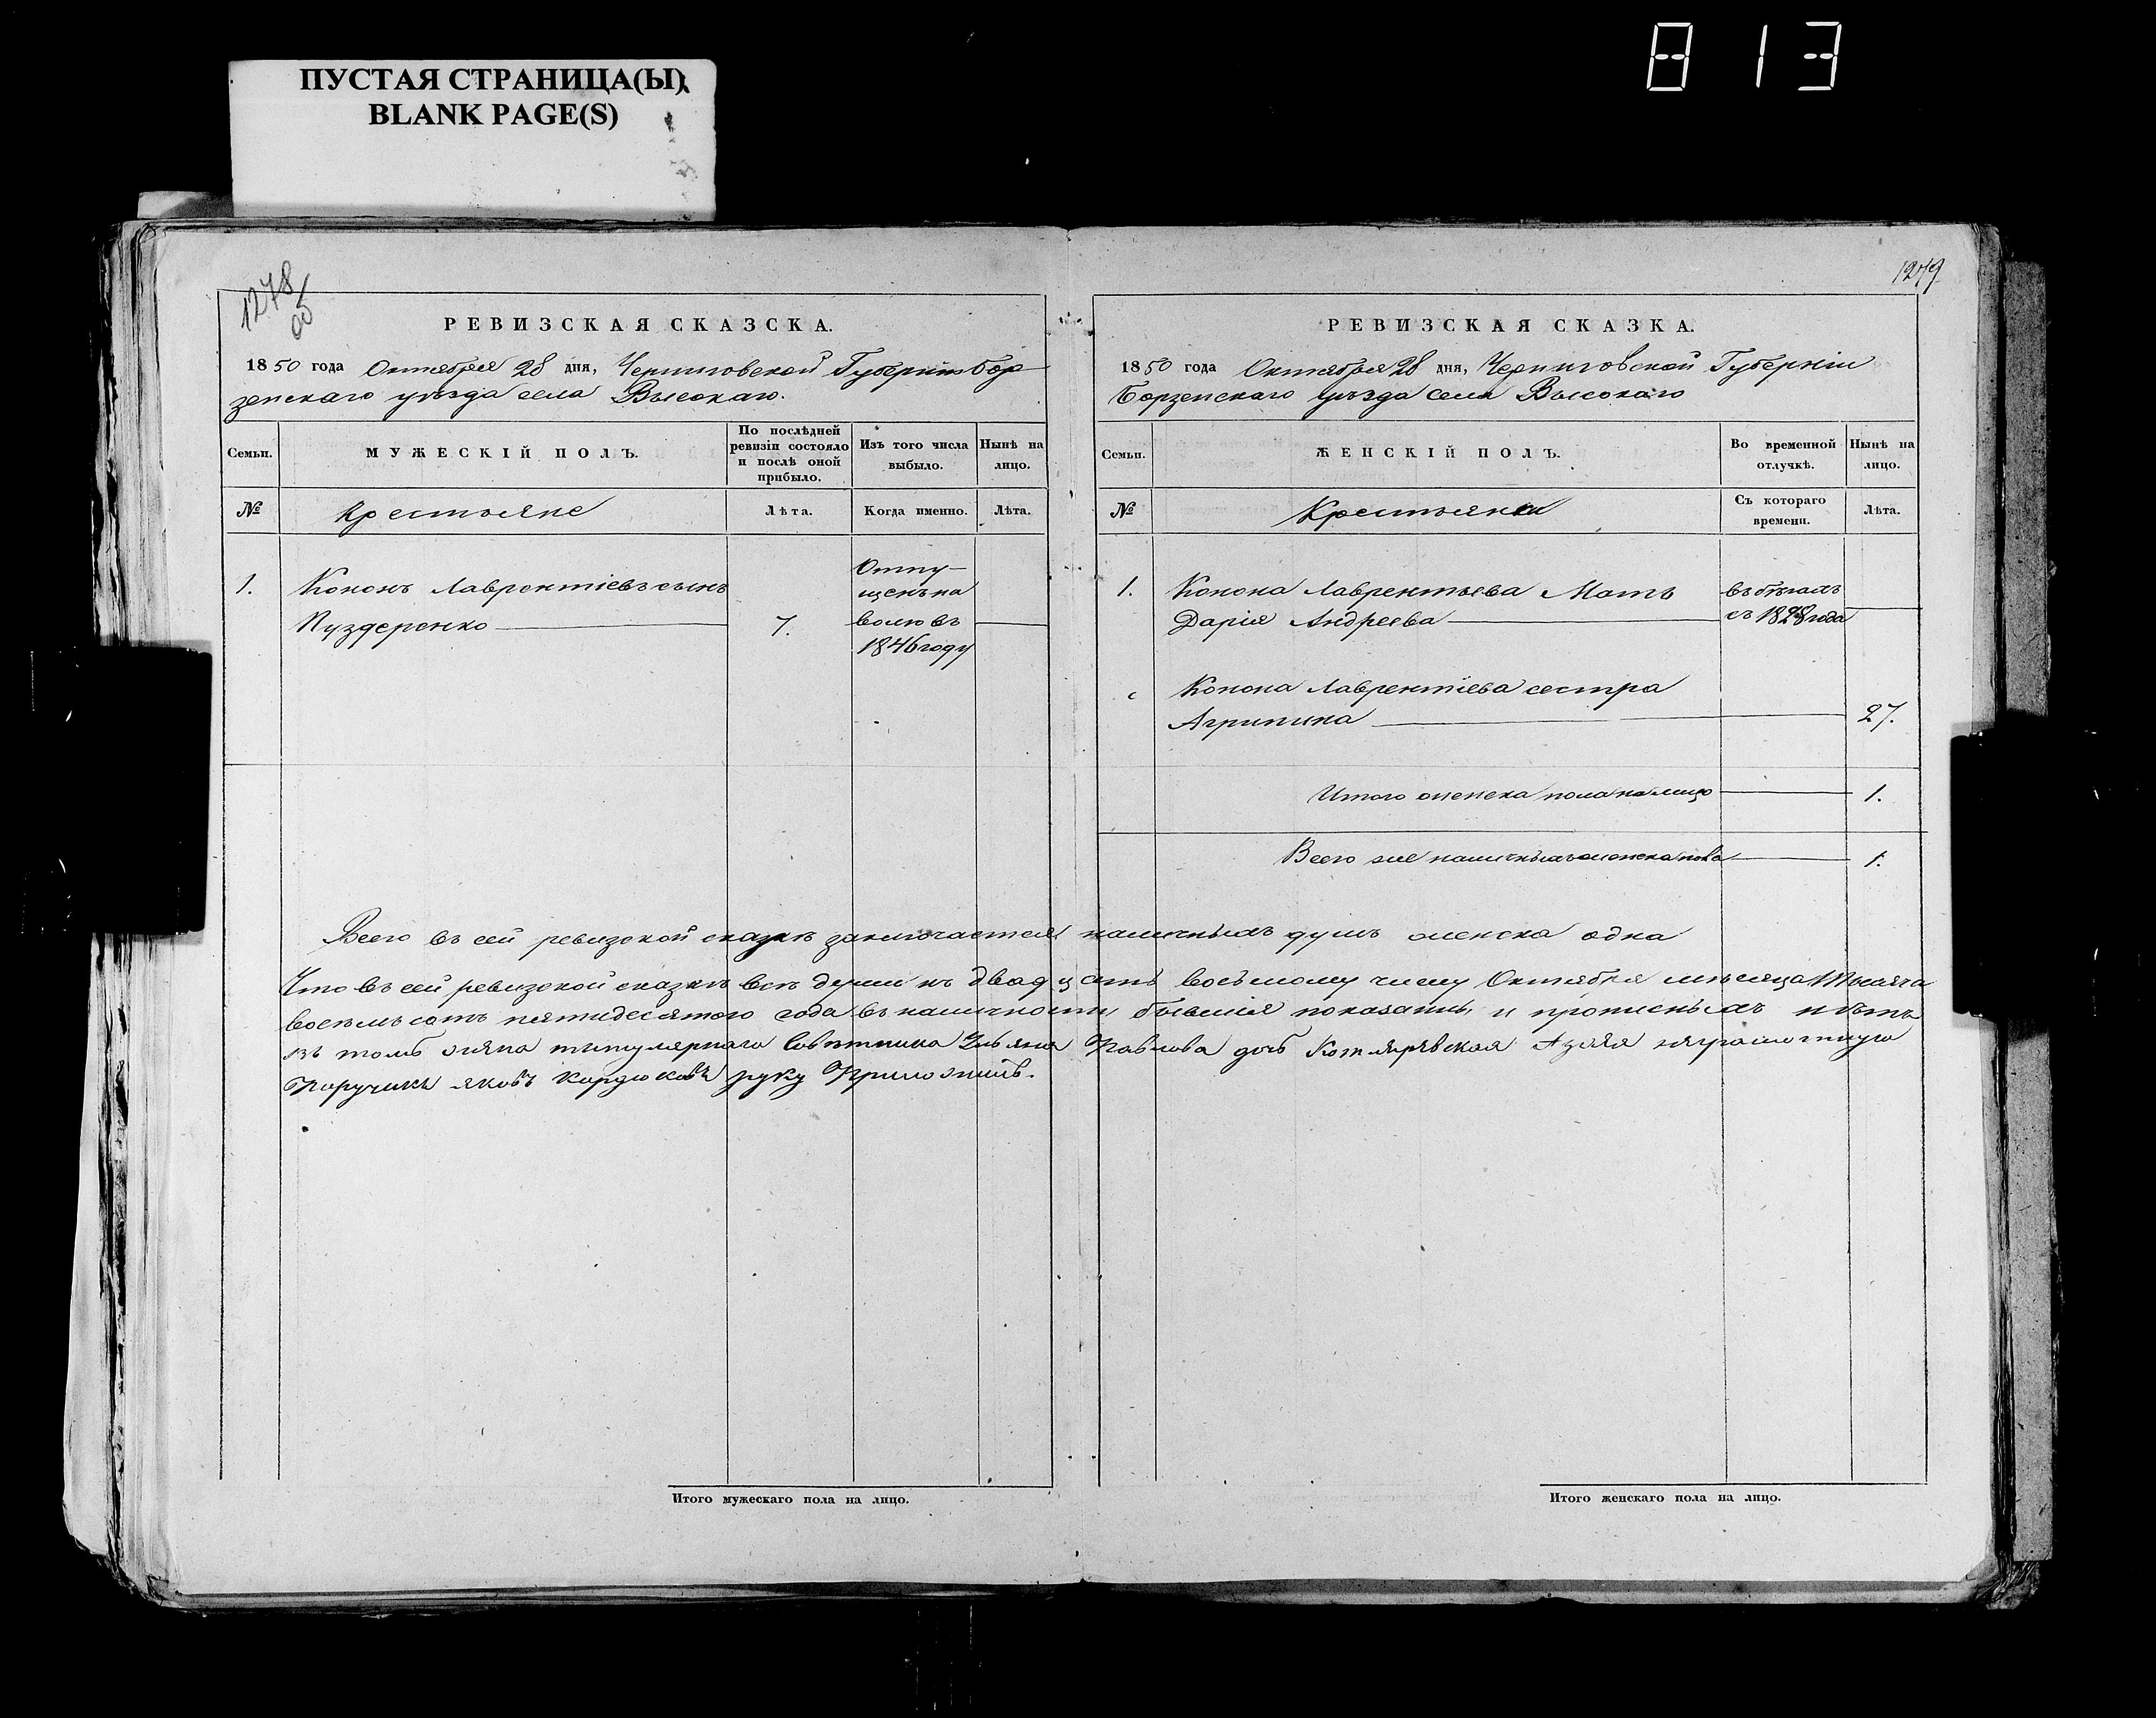 ПУСТАЯ СТРАНИЦА(Ы)
BLANK PAGE(S)
813
1278
об
1279
РЕВИЗСКАЯ СКАЗСКА.
1850 года Октября 28 дня, Черниговской Губернiи Бор
зенскаго уѣзда села Высокаго.
Семьи.
МУЖЕСКІЙ ПОЛЪ.
По послѣдней
ревизіи состояло
и послѣ оной
прибыло.
Изъ того числа
выбыло.
Нынѣ на
лицо.
№
Крестьяне
Лѣта.
Когда именно.
Лѣта.
1.
Кононъ Лаврентіевъ сынъ
Пуздеренко
7.
Отпу-
щенъ на
волю въ
1846 году
РЕВИЗСКАЯ СКАЗКА.
1850 года Октября 28 дня, Черниговской Губерніи
Борзенскаго уѣзда села Высокаго
Семьи.
ЖЕНСКІЙ ПОЛЪ.
Во временной
отлучкѣ.
Нынѣ на
лицо.
№
Крестьянки
Съ котораго
времени.
Лѣта.
1.
Конона Лаврентьева Мать
Дарія Андреева
въ бѣгахъ
съ 1828 года
Конона Лаврентіева сестра
Агрипина
27.
Итого женска пола на лицо
1.
Всего же наличныхъ женска пола
1.
Всего въ сей ревизской сказкѣ заключается наличныхъ душъ женска одна
Что въ сей ревизской сказкѣ всѣ души къ двадцать восьмому числу Октября мѣсяца Тысяча
восемьсотъ пятидесятого года въ наличности бывшія показаны, и прописныхъ нѣтъ
въ томъ жяна титулярнаго Совѣтника Ульяна Павлова дочь Котляревская А зая няграмотную
Поручикъ яковъ Кордюковъ руку Приложилъ.
Итого мужескаго пола на лицо.
Итого женскаго пола на лицо.